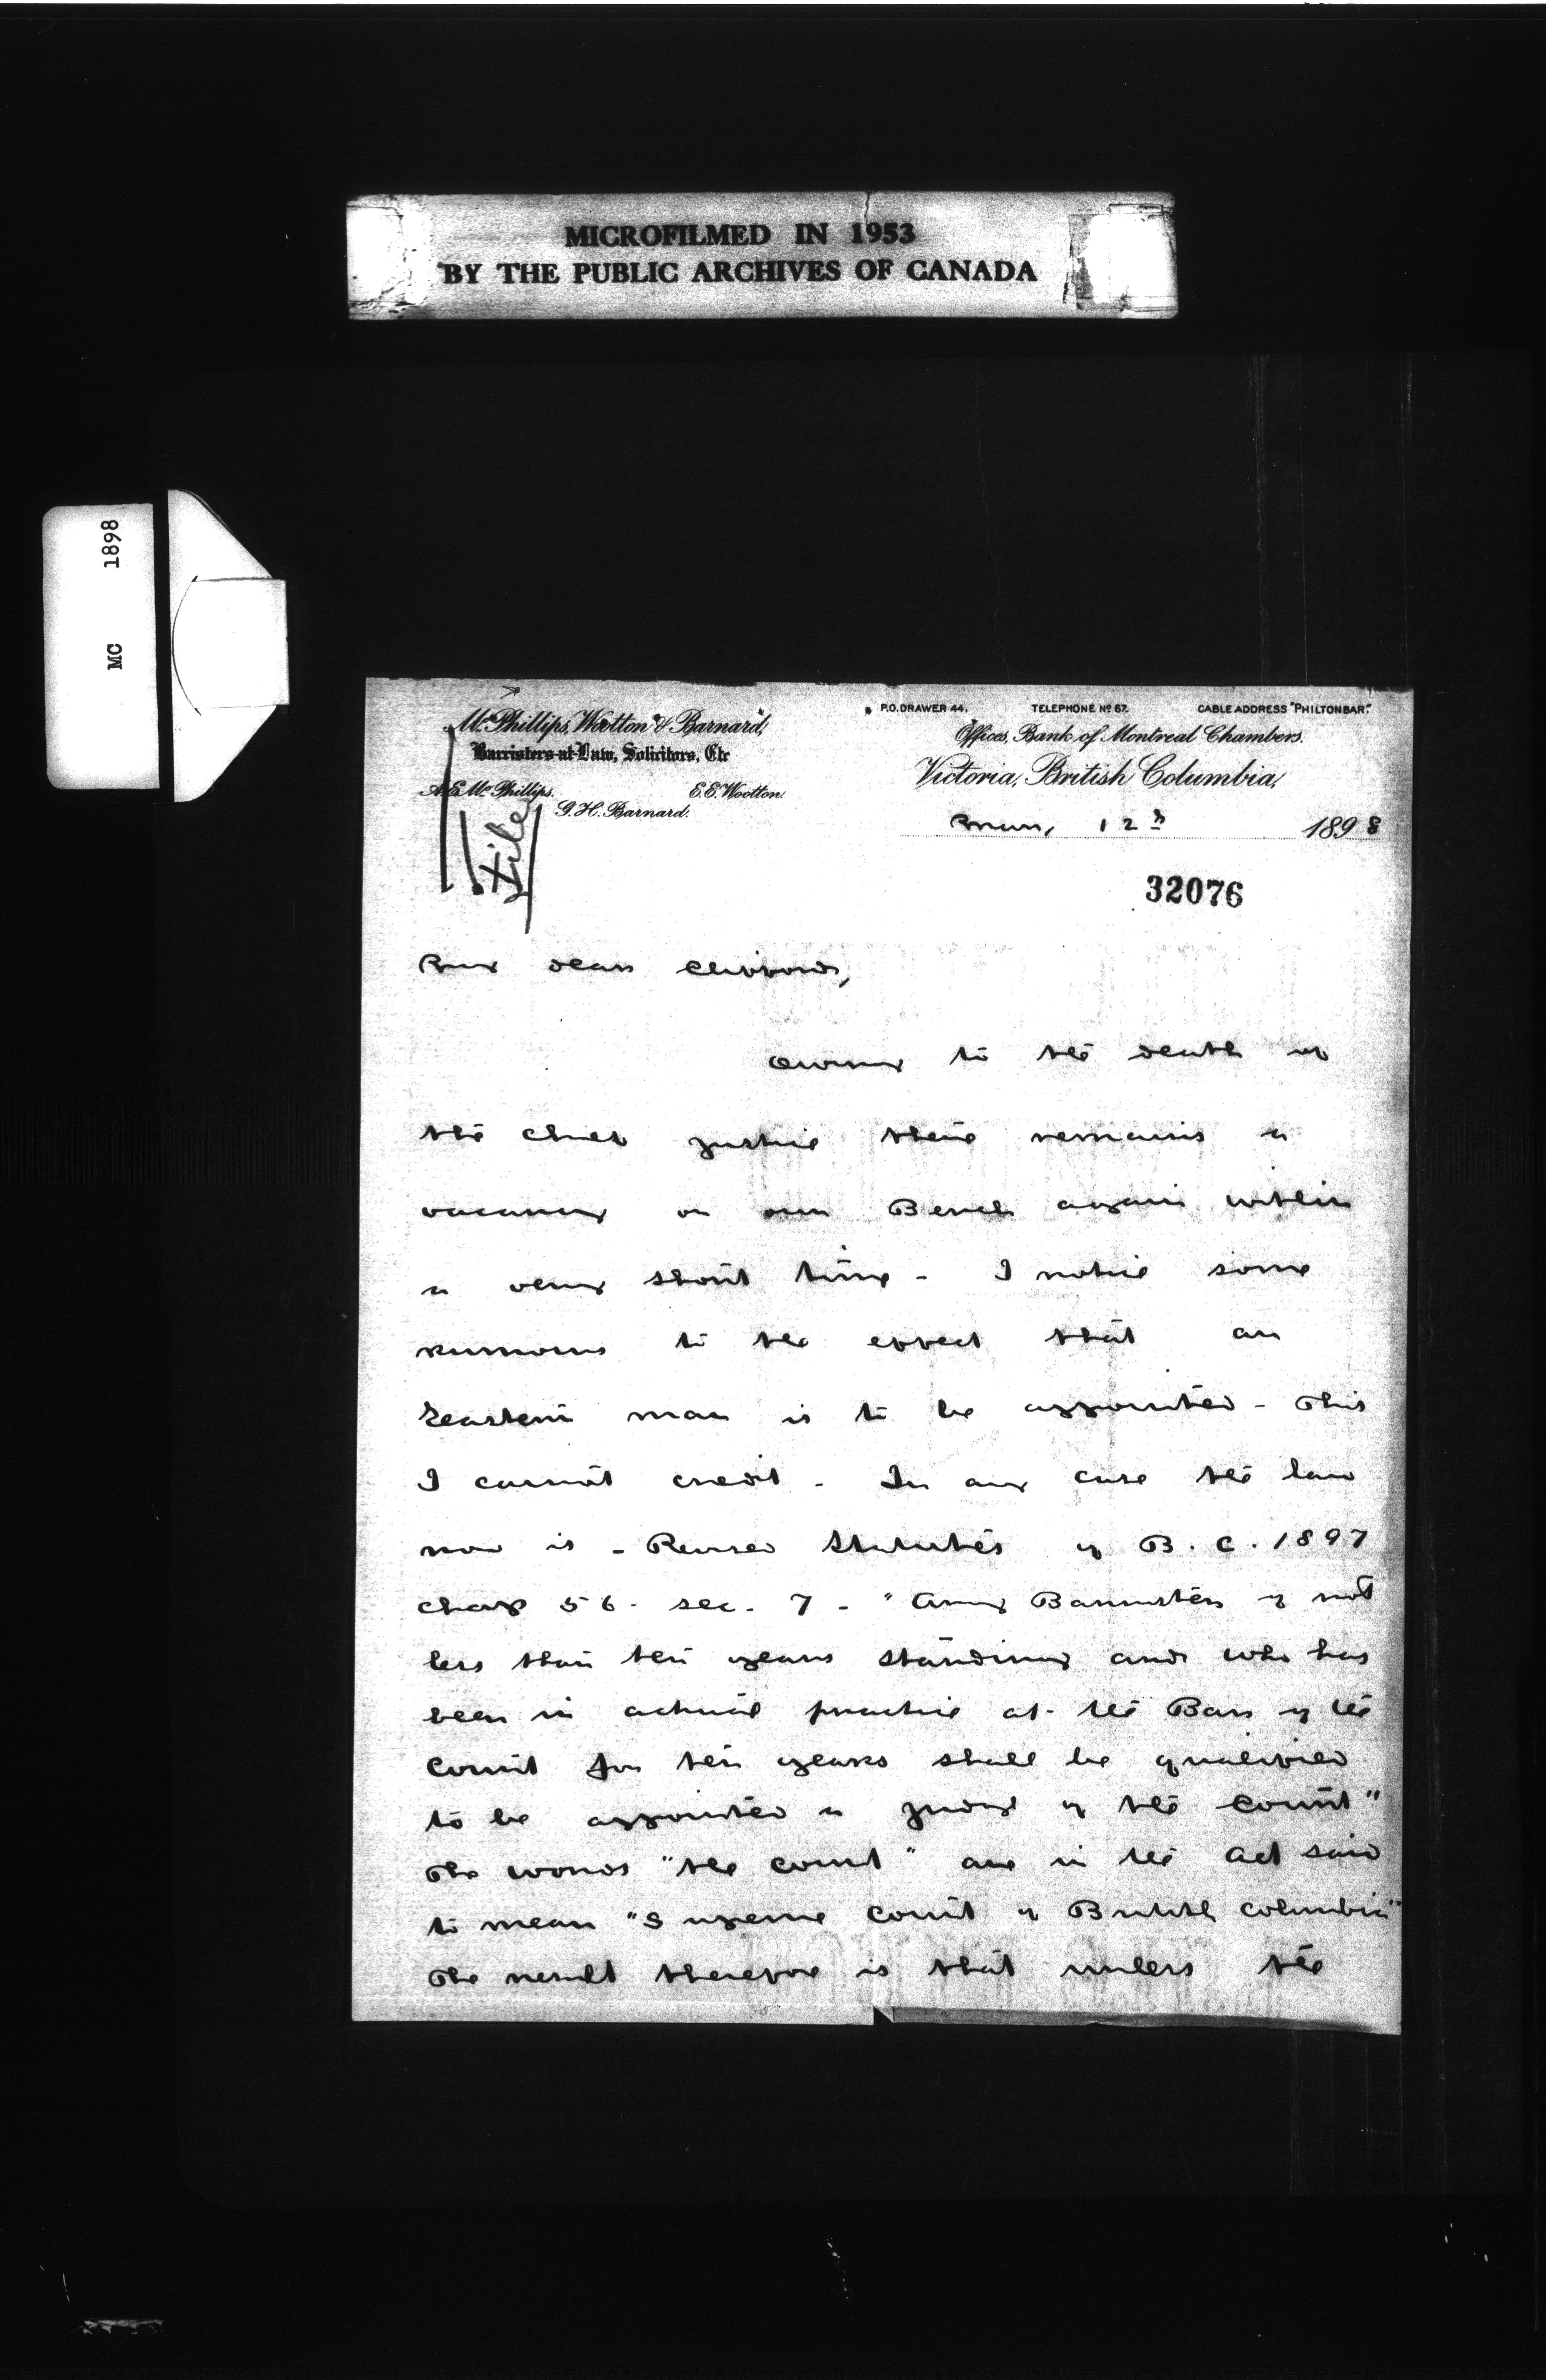 MICROFILMED IN 1953
BY THE PUBLIC ARCHIVES OF CANADA
MC 1898
McPhillips, Wootton & Barnard,
Barristers-at-Law, Solicitors, Etc
A.E. McPhillips. E.E. Wootton.
G.H. Barnard.
P.O. DRAWER 44. TELEPHONE No 67. CABLE ADDRESS "PHILTONBAR."
Offices, Bank of Montreal Chambers.
Victoria, British Columbia,
12th 1898
File
32076
My dear Clifford,
Owing to the death of
the Chief Justice there remains a
vacancy on our Bench again within
a very short time - I notice some
rumours to the effect that an
Eastern man is to be appointed - This
I cannot credit - In any case the law
now is - Revised Statutes of B. C. 1897
chap 56. sec. 7 - "Any Barrister of not
less than ten years standing and who has
been in actual practice at the Bar of the
Court for ten years shall be qualified
to be appointed a Judge of the Court"
The words "the Court" are in the Act said
to mean "Supreme Court of British Columbia"
The result therefore is that unless the